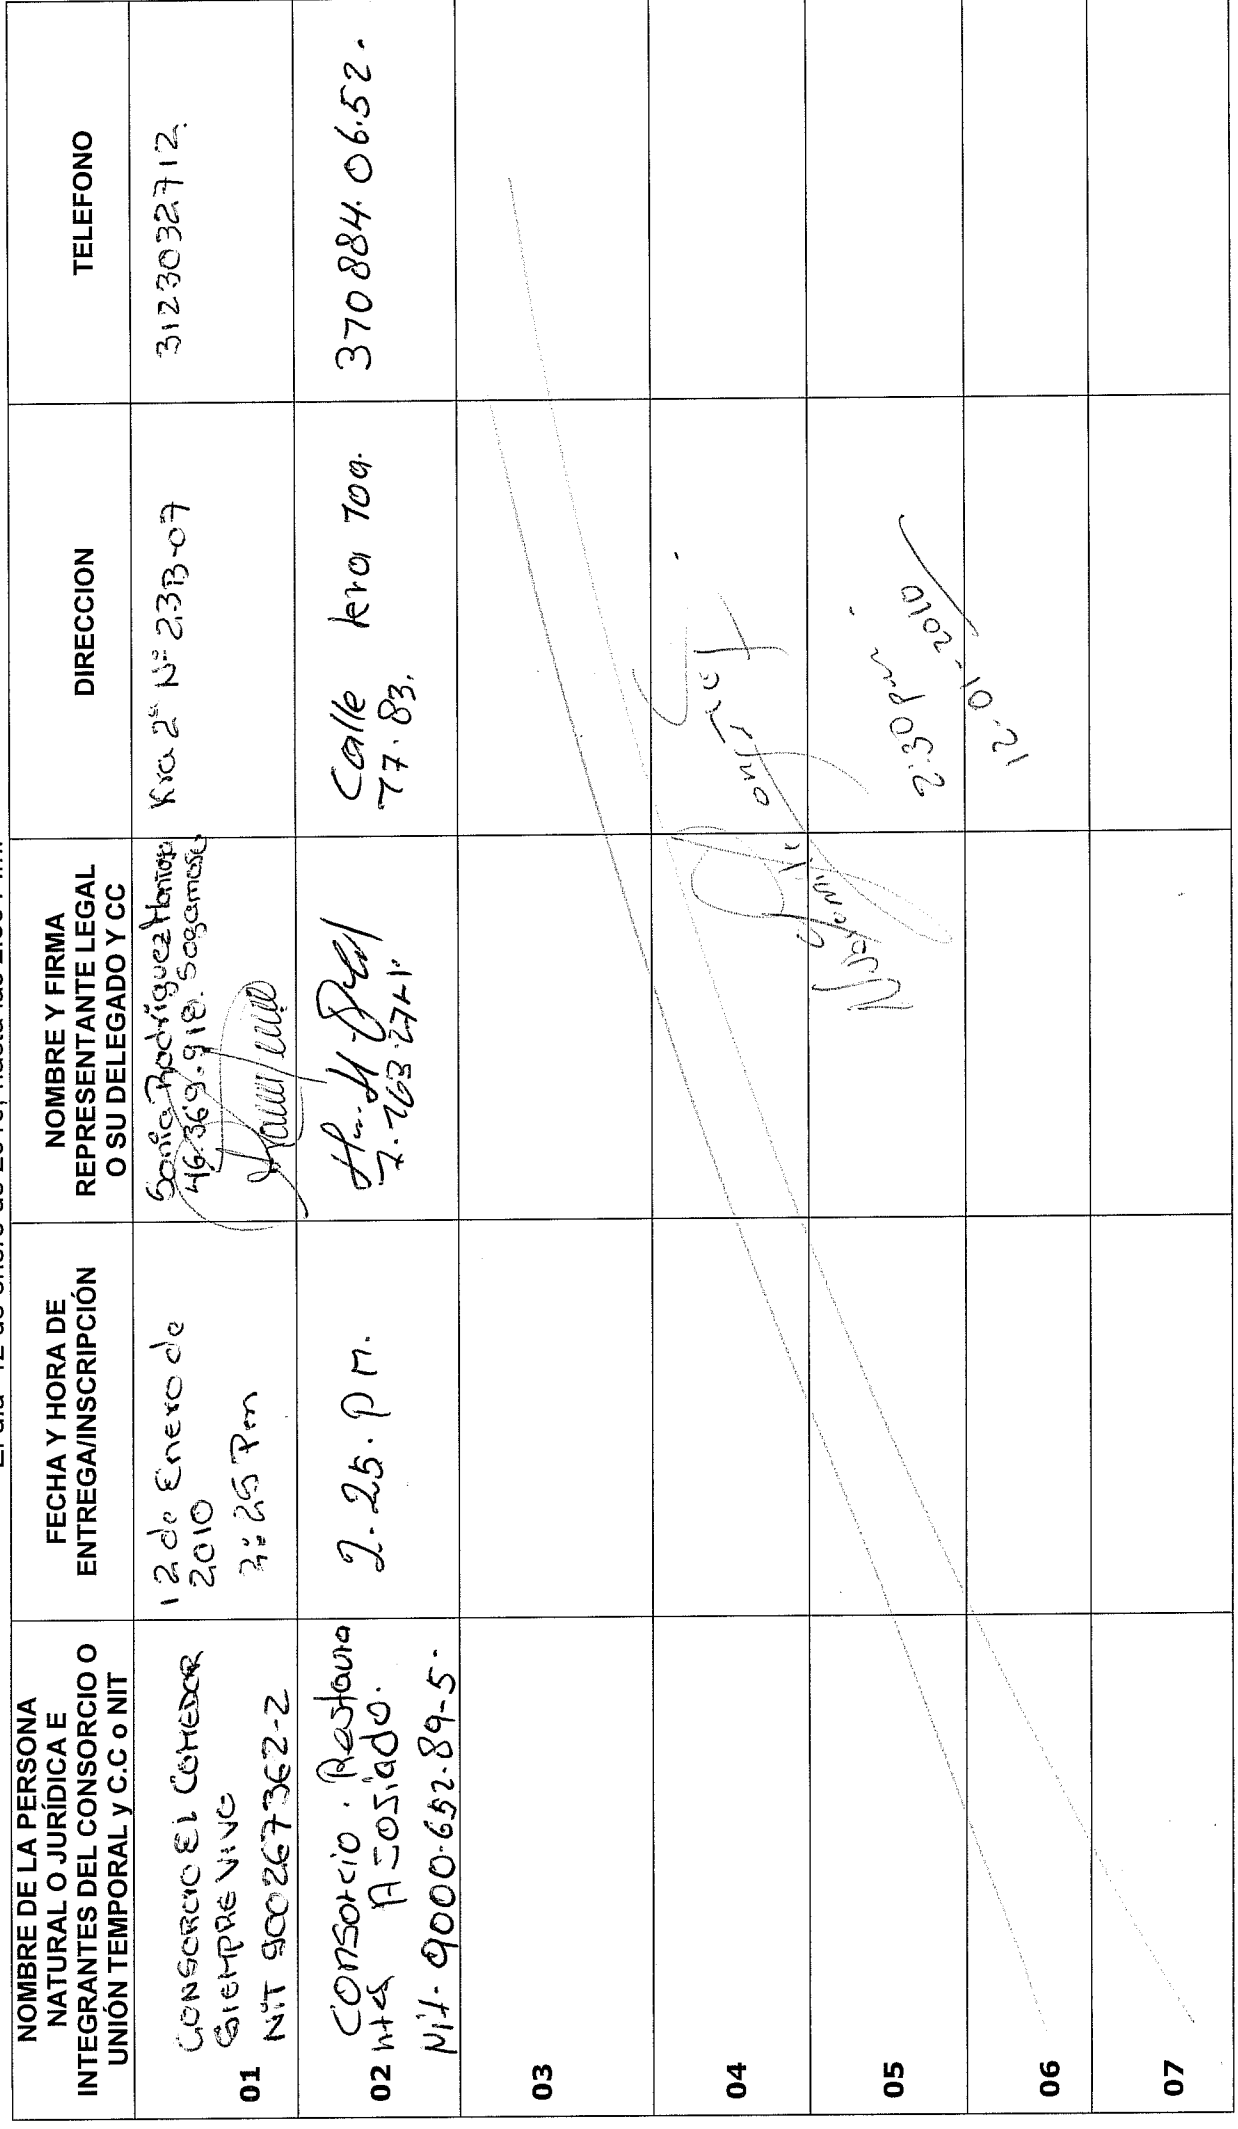 El día 12 de enero de 2010, hasta las 2:30 P.M.
NOMBRE DE LA PERSONA
NATURAL O JURÍDICA E
INTEGRANTES DEL CONSORCIO O
UNIÓN TEMPORAL y C.C o NIT
FECHA Y HORA DE
ENTREGA/INSCRIPCIÓN
NOMBRE Y FIRMA
REPRESENTANTE LEGAL
O SU DELEGADO Y CC
DIRECCION
TELEFONO
01
CONSORCIO EL COMEDOR
SIEMPRE VIVO
NIT 900267362-2
12 de Enero de
2010
2:25 Pm
Sonia Rodríguez
46.369.918. Sogamoso
Kra 2ª Nº 23B-07
3123032712.
02
Consorcio. Restaura
ntes Asosiado.
Nit. 9000.652.89-5.
2.25. p m.
7.163.271.
Calle kra 10a.
77.83.
370884.06.52.
03
04
05
2:30 pm
12-01-2010
06
07